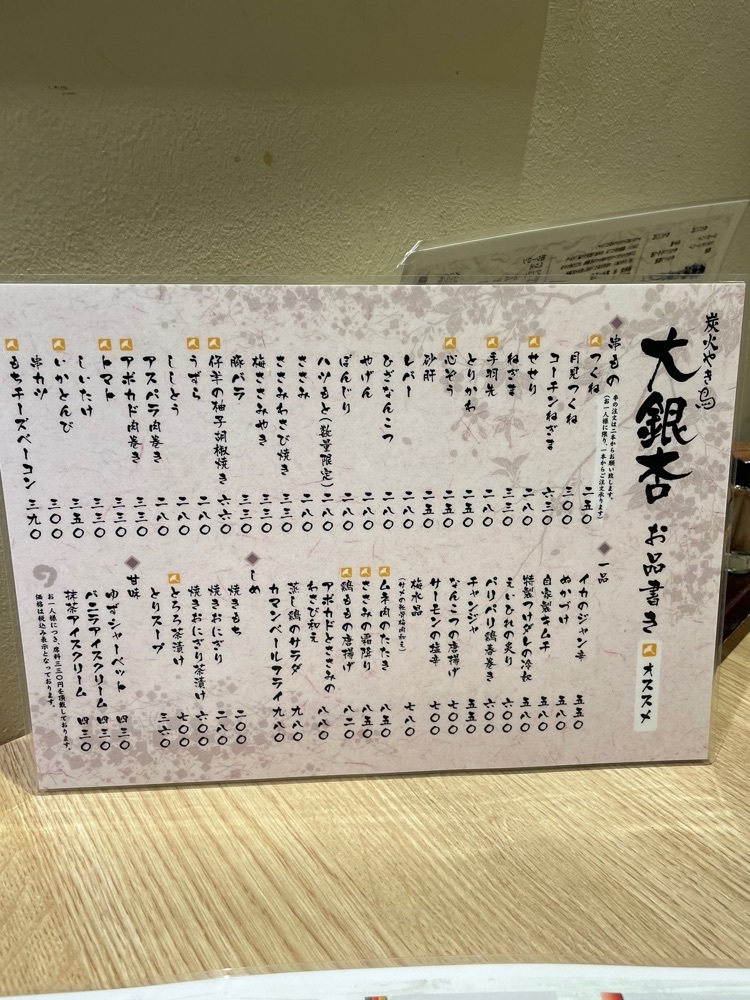 炭火やき鳥
大銀杏 お品書き オススメ
串もの
串の注文は二本からお願い致します。
(お一人様に限り、一本からご注文承ります)
つくね 二五〇
月見つくね 三〇〇
コーチンねぎま 六三〇
せせり 二八〇
ねぎま 三三〇
手羽先 二八〇
とりかわ 二五〇
心ぞう 二五〇
砂肝 二五〇
レバー 二八〇
ひざなんこつ 二八〇
やげん 二八〇
ぼんじり 二五〇
ハツもと(数量限定) 二八〇
ささみ 二八〇
ささみわさび焼き 三三〇
梅ささみやき 三三〇
豚バラ 三三〇
仔羊の柚子胡椒焼き 六六〇
うずら 二八〇
ししとう 二八〇
アスパラ肉巻き 三三〇
アボカド肉巻き 三三〇
トマト 三三〇
しいたけ 三三〇
いかとんび 三〇〇
串カツ 三〇〇
もちチーズベーコン 三九〇
一品
イカのジャン辛 五五〇
ぬかづけ 五八〇
自家製キムチ 五八〇
特製つけダレの冷奴 五五〇
えいひれの炙り 六〇〇
パリパリ鶏春巻き 六〇〇
チャンジャ 五五〇
なんこつの唐揚げ 七〇〇
サーモンの塩辛 七〇〇
梅水晶 七八〇
(サメの軟骨梅肉和え)
ムネ肉のたたき 八五〇
ささみの霜降り 八五〇
鶏ももの唐揚げ 八二〇
アボカドとささみの
わさび和え 八八〇
蒸し鶏のサラダ 九八〇
カマンベールフライ 九八〇
しめ
焼きもち 二〇〇
焼きおにぎり 二八〇
焼きおにぎり茶漬け 六〇〇
とろろ茶漬け 七〇〇
とりスープ 三六〇
甘味
ゆずシャーベット 四三〇
バニラアイスクリーム 四三〇
抹茶アイスクリーム 四三〇
お一人様につき、席料三三〇円を頂戴しております。
価格は税込み表示となっております。